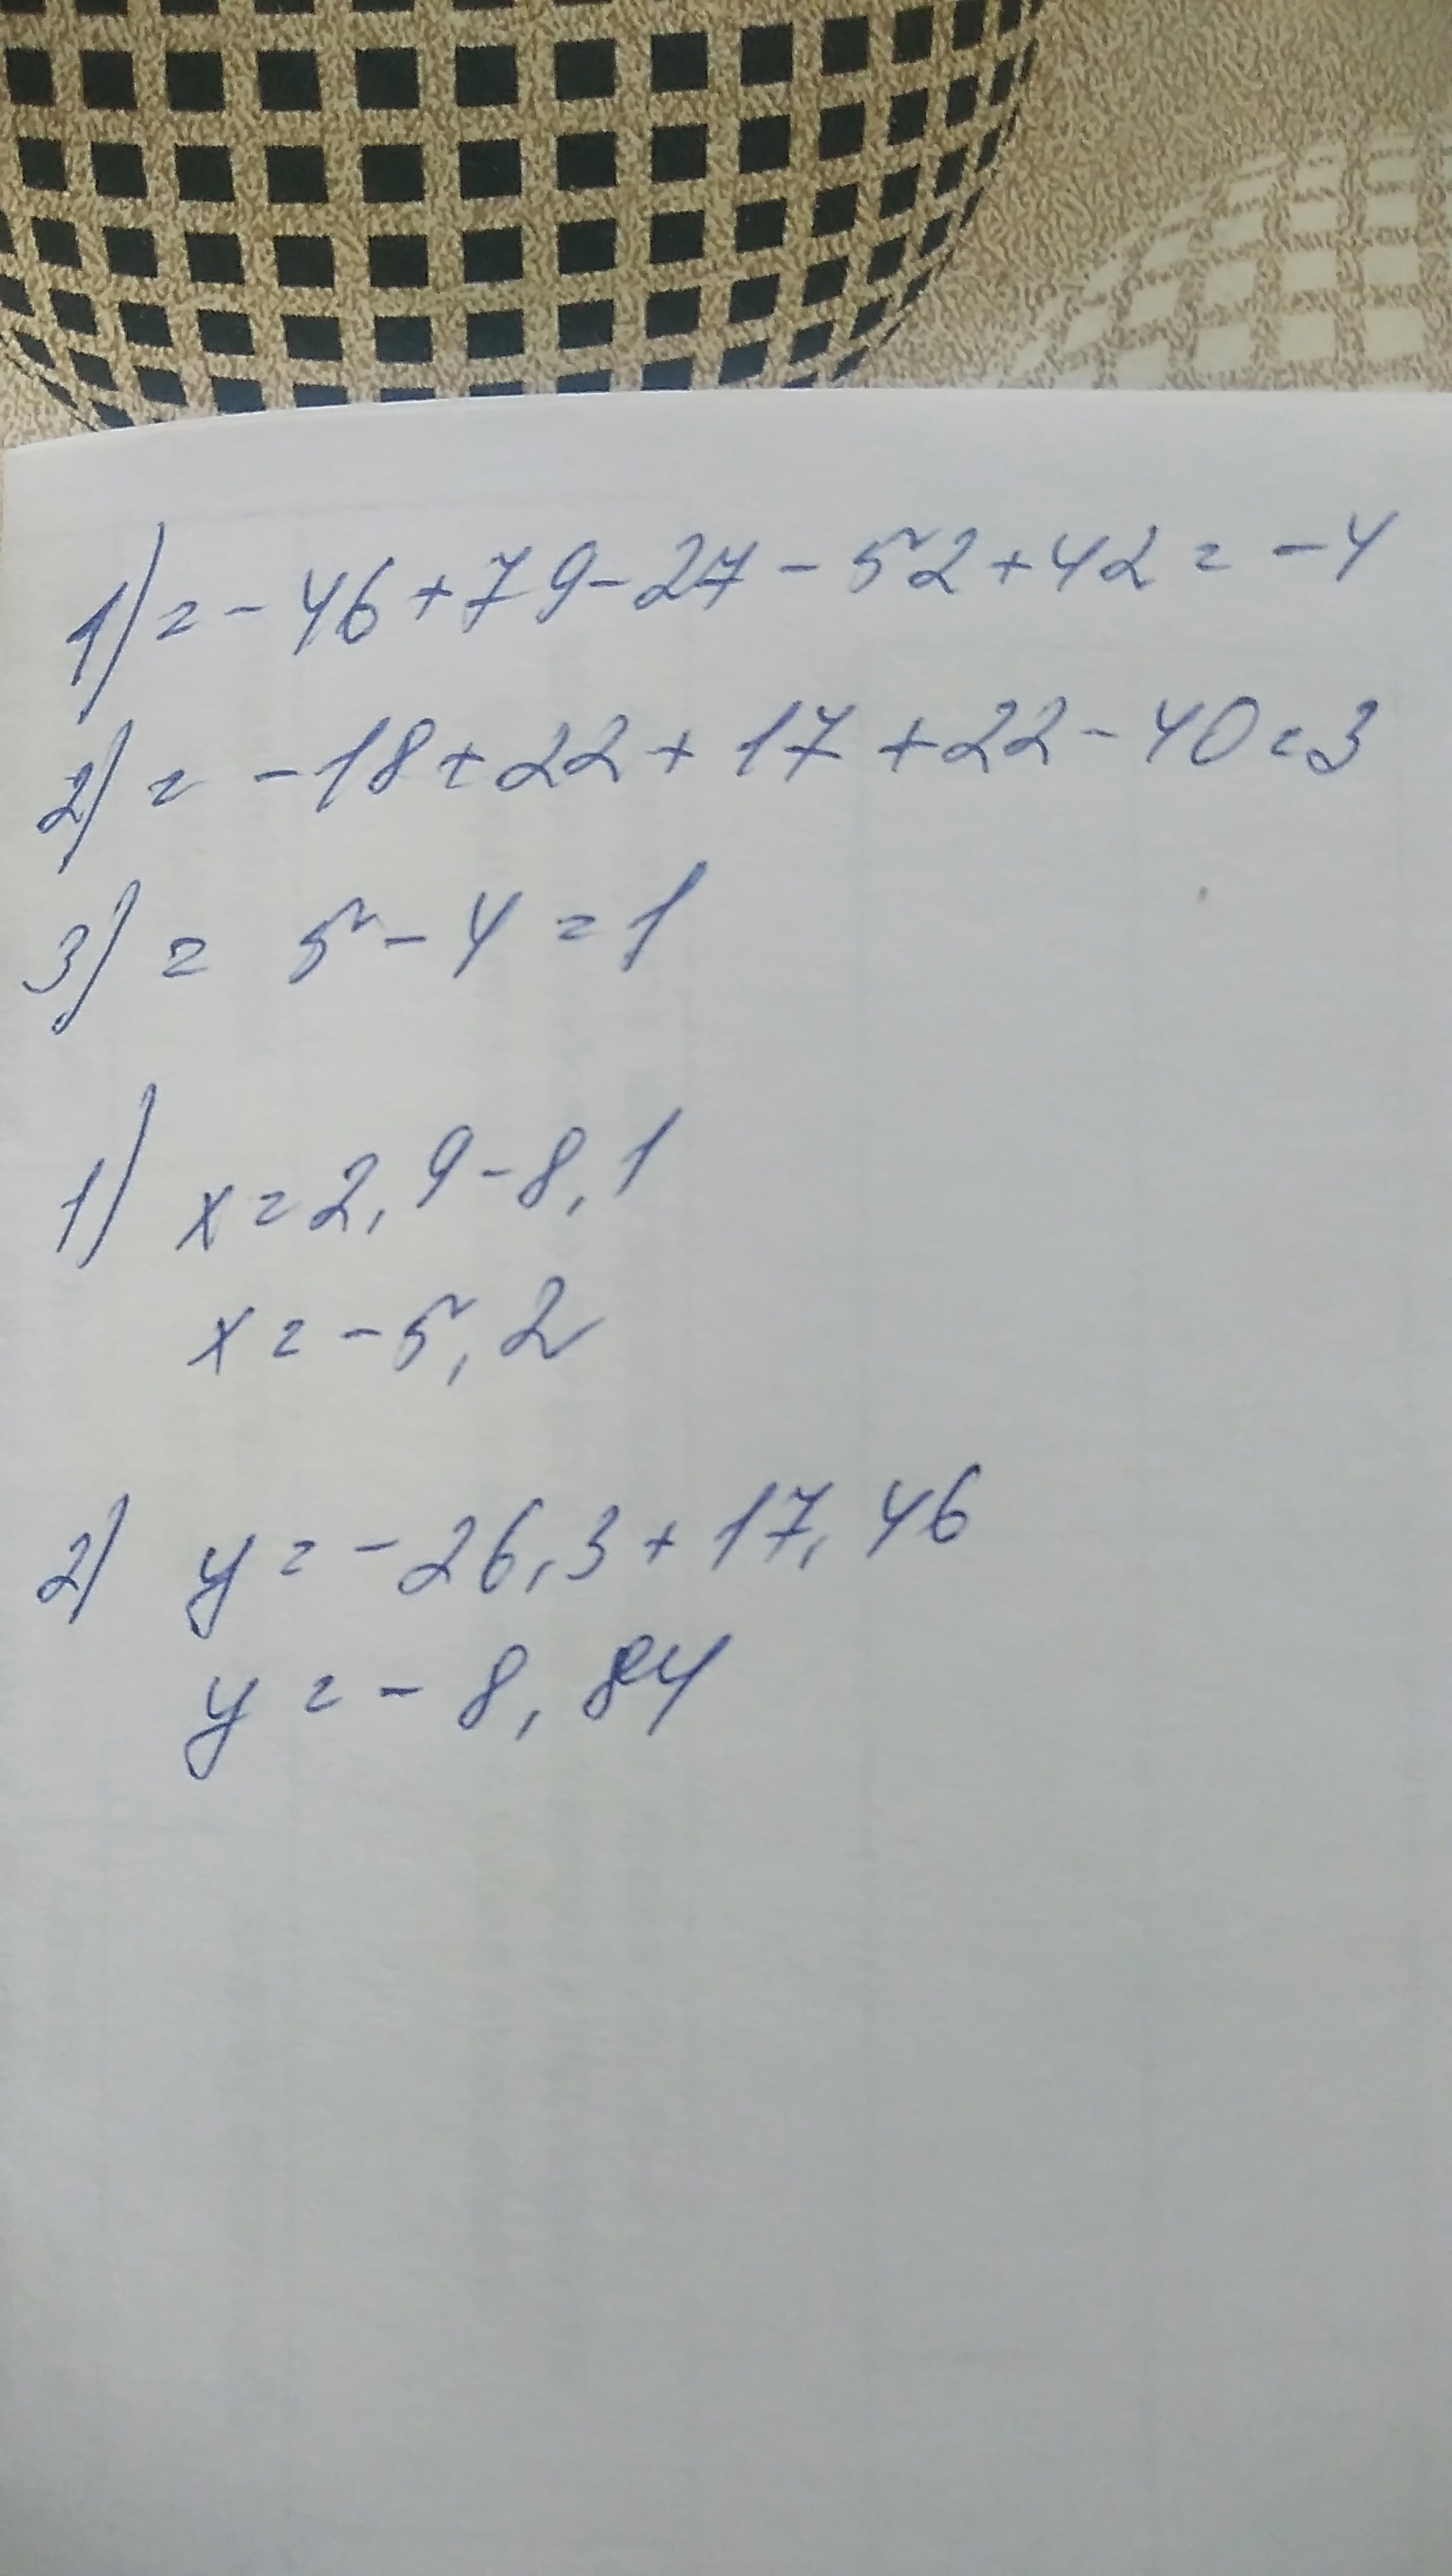 1) = - 46 + 79 - 27 - 52 + 42 = - 4
2) = - 18 + 22 + 17 + 22 - 40 = 3
3) = 5 - 4 = 1
1) x = 2,9 - 8,1
x = - 5,2
2) y = - 26,3 + 17,46
y = - 8,84